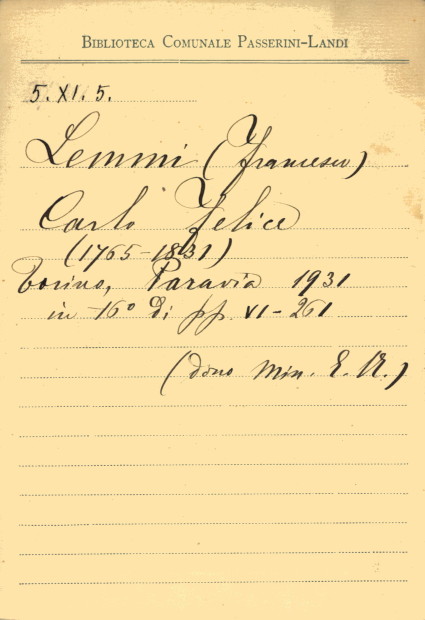 BIBLIOTECA COMUNALE PASSERINI-LANDI
5. XI. 5.
Lemmi (Francesco)
Carlo Felice
(1765-1831)
Torino, Paravia 1931
in 16° di pp. VI-261
(dono Min. E. N.)